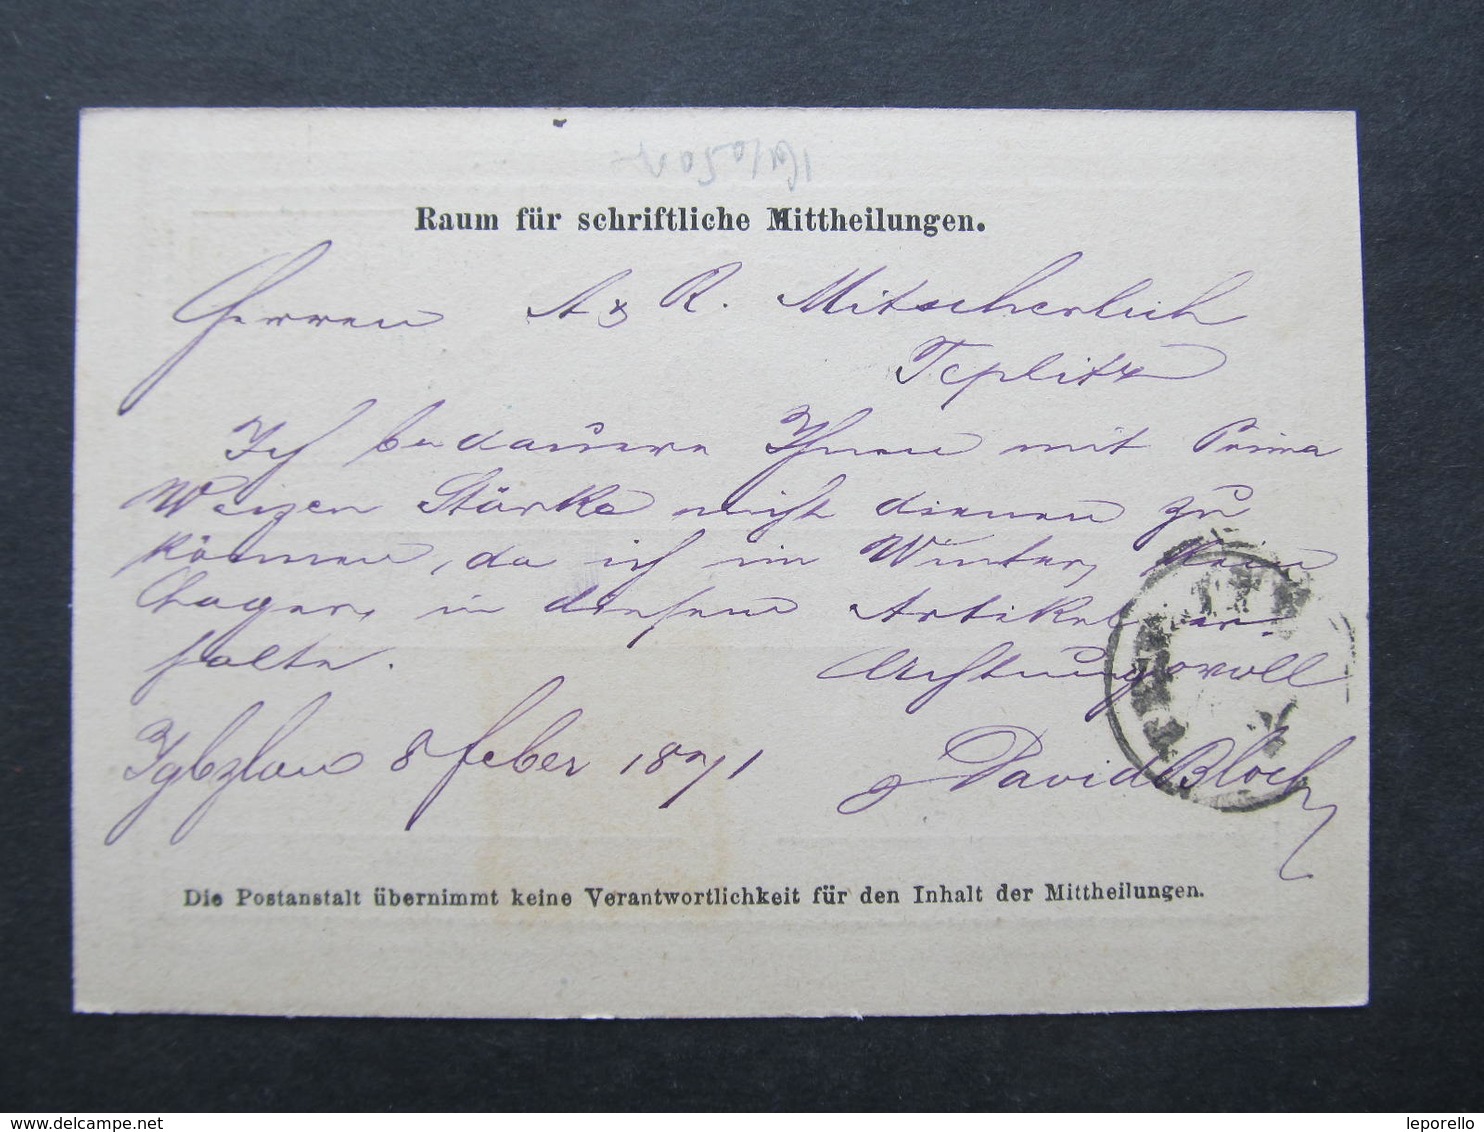 Raum für schriftliche Mittheilungen.
Herren A & R. Mitscherlich
Teplitz
Ich bedauere Ihnen mit Prima
Weizen Stärke nicht dienen zu
können, da ich im Winter, kein
Lager, in diesem Artikel er-
halte. Achtungsvoll
8 feber 1871 David Bloch
Die Postanstalt übernimmt keine Verantwortlichkeit für den Inhalt der Mittheilungen.
www.delcampe.net
leporello